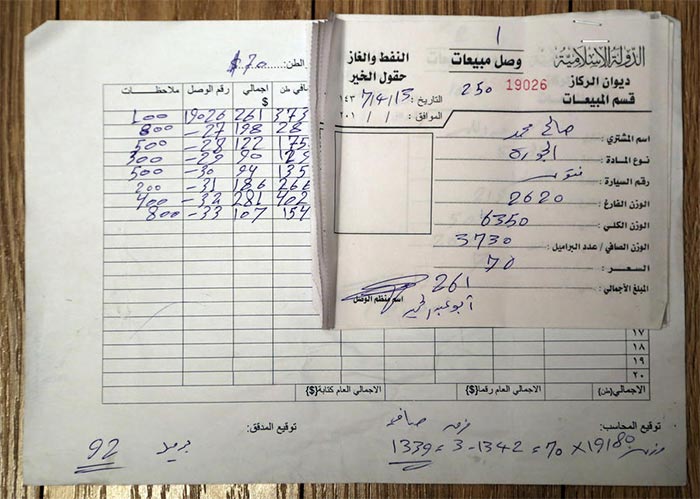 1
الدولة الإسلامية
ديوان الركاز
قسم المبيعات
وصل مبيعات
250 19026
النفط والغاز
حقول الخير
التاريخ : 15/ 4/ ١٤٣7
الموافق : / / ٢٠١
اسم المشتري : صالح محمد
نوع المادة :
رقم السيارة :
الوزن الفارغ : 2620
الوزن الكلي : 6350
الوزن الصافي / عدد البراميل : 3730
السعر : 70
المبلغ الأجمالي : 261
اسم منظم الوصل
الطن: $70
ملاحظات رقم الوصل اجمالي $ صافي طن
100 19026 261 373
800 -27 198 28
500 -28 122 175
300 -29 90 129
500 -30 94 135
200 -31 186 266
400 -32 281 402
800 -33 107 154
١٧
١٨
١٩
٢٠
الاجمالي (طن) الاجمالي العام رقما{$} الاجمالي العام كتابة{$}
توقيع المحاسب: توقيع المدقق:
1339 = 3 - 1342 = 70 × 19180
92